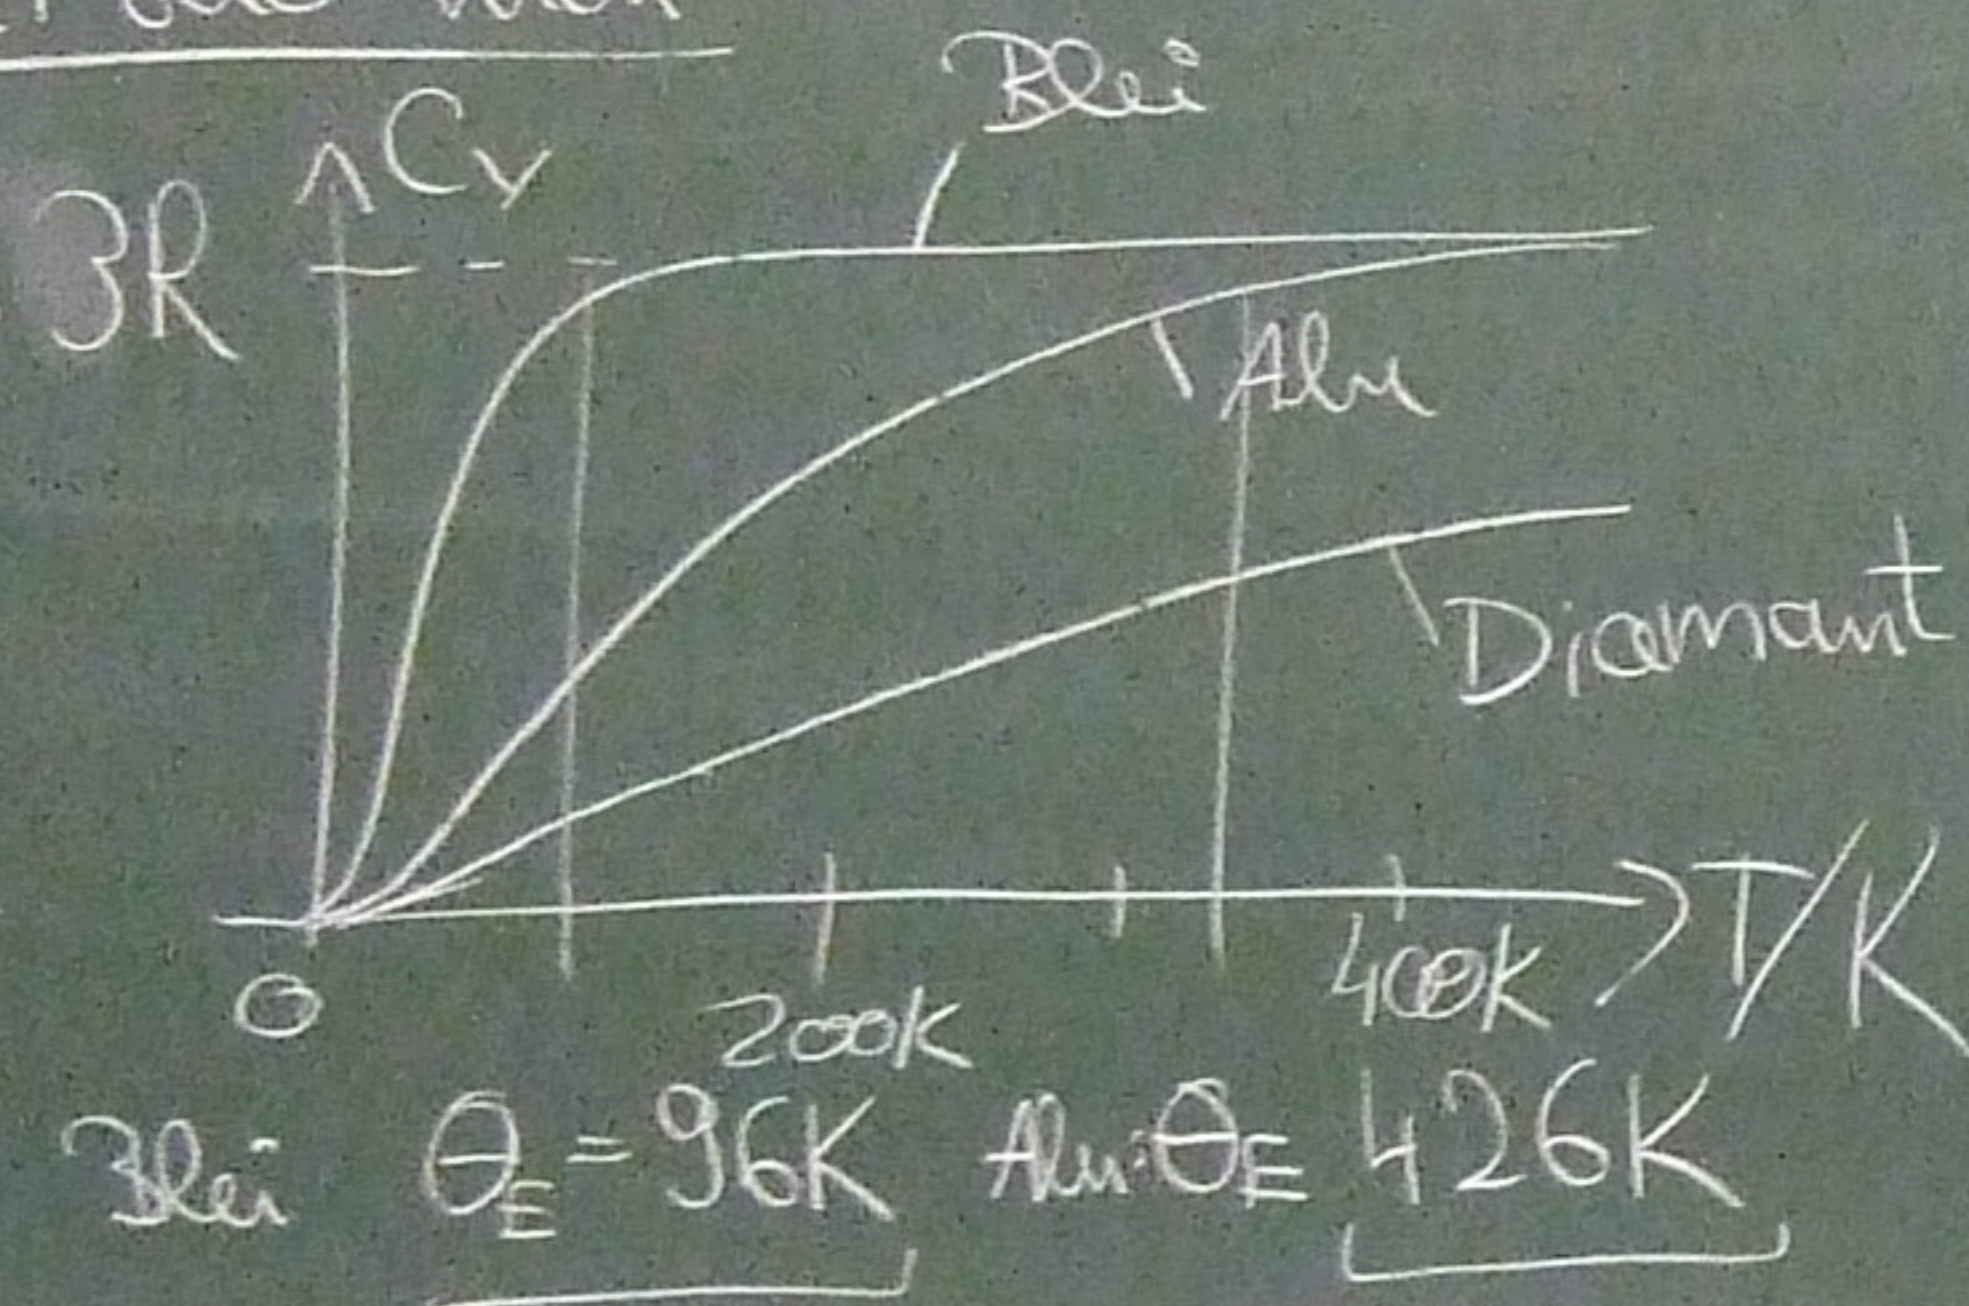 Blei
Cv
3R
Alu
Diamant
T/K
0
200K
400K
Blei θE = 96K Alu: θE 426K